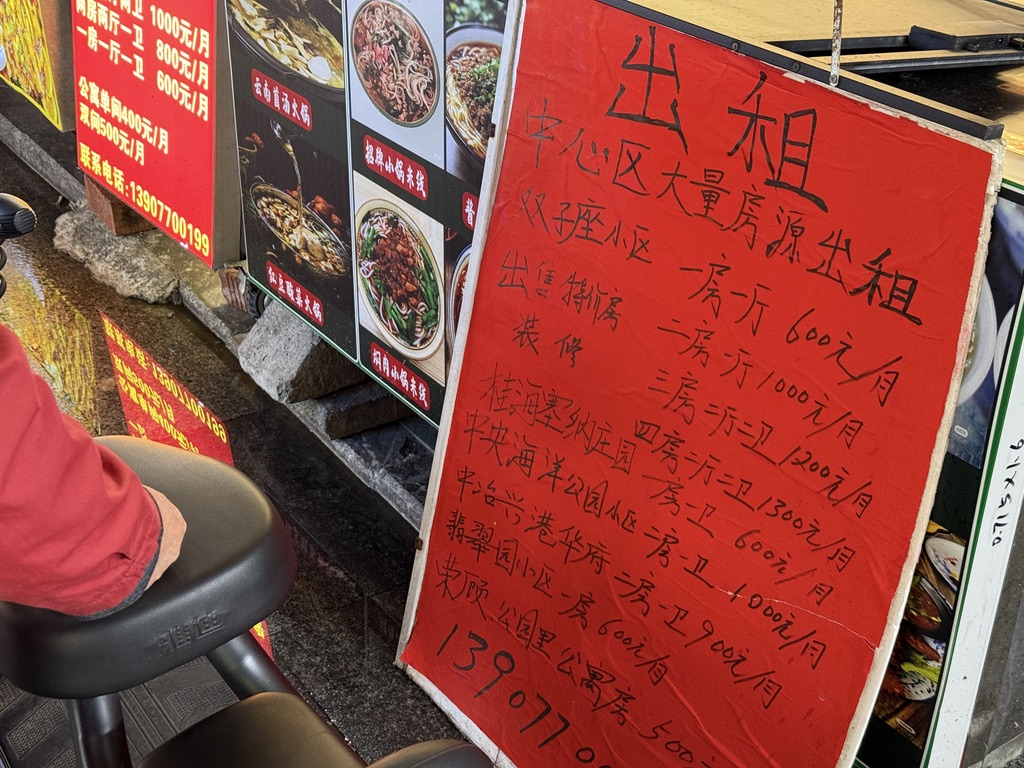 两卫 1000元/月
两房两厅一卫 800元/月
一房一厅一卫 600元/月
公寓单间400元/月
双间500元/月
联系电话:13907700199
云南卤油火锅
红豆酸菜火锅
招牌小锅米线
焖肉小锅米线
酱
出租
中心区大量房源出租
双子座小区 一房一厅 600元/月
出售特价房 二房一厅 1000元/月
装修 三房二厅二卫 1200元/月
四房二厅二卫 1300元/月
桂海塞纳庄园 一房一卫 600元/月
中央海洋公园小区 二房一卫 1000元/月
中冶兴港华府 二房一卫 900元/月
翡翠园小区 一房 600元/月
荣顾公园里公寓房 500元
1390770